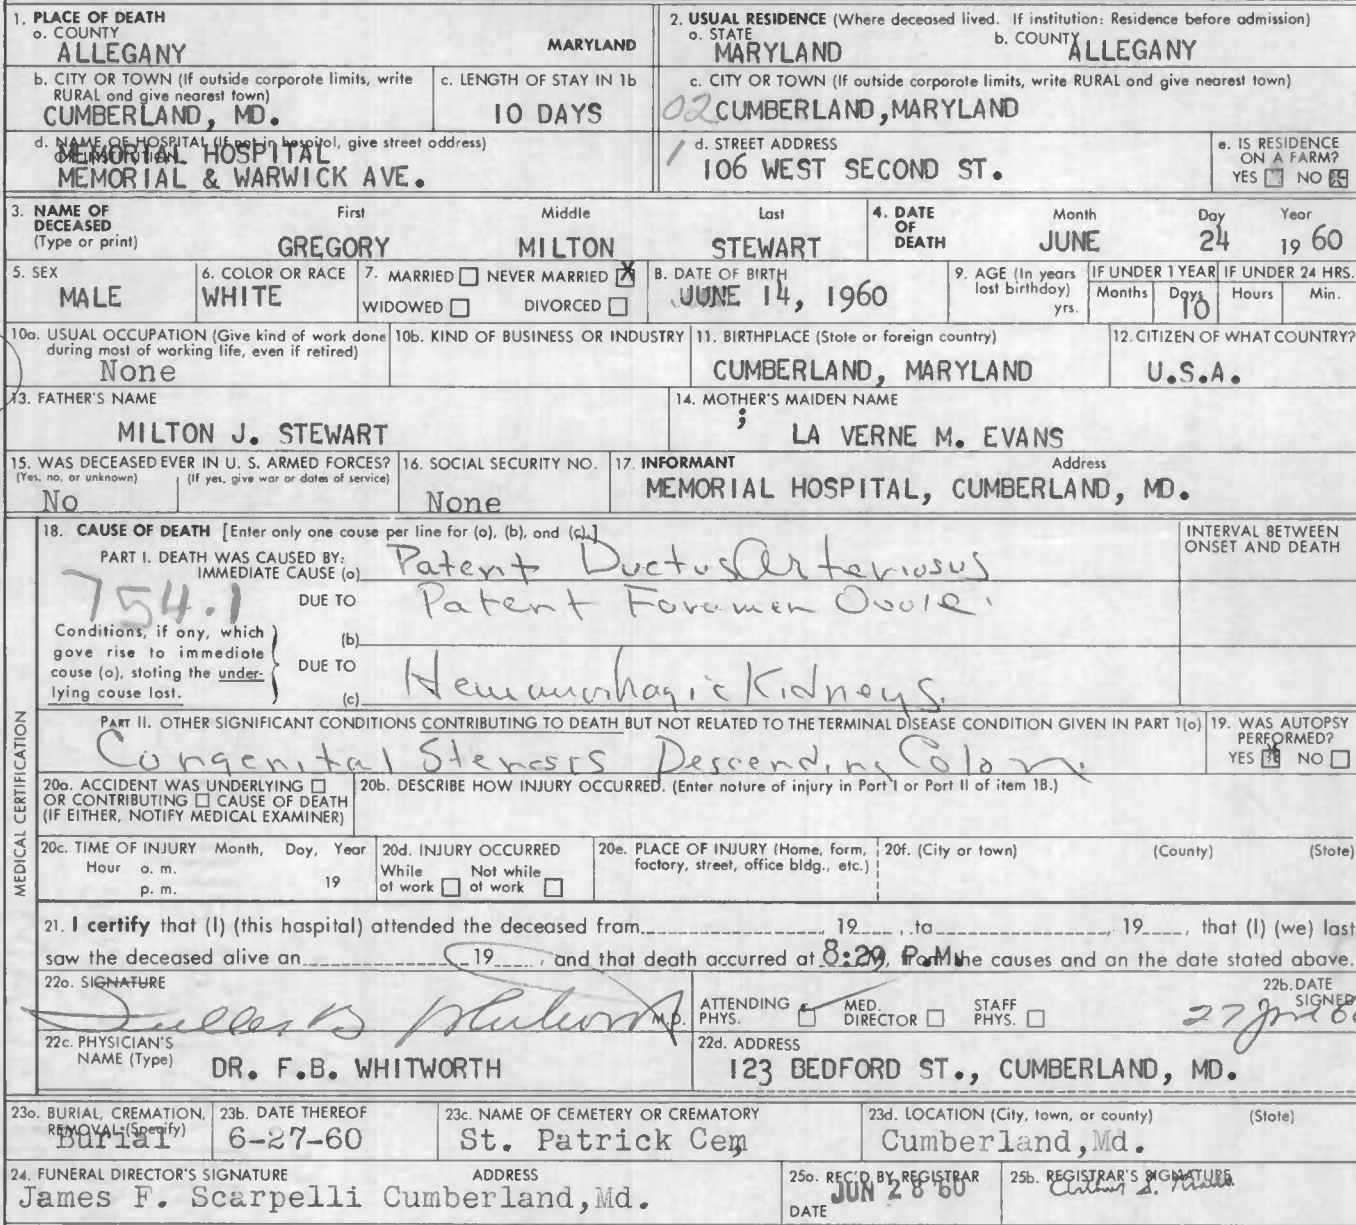 1. PLACE OF DEATH
a. COUNTY
ALLEGANY
MARYLAND
2. USUAL RESIDENCE (Where deceased lived. If institution: Residence before admission)
a. STATE
MARYLAND
b. COUNTY
ALLEGANY
b. CITY OR TOWN (If outside corporate limits, write
RURAL and give nearest town)
CUMBERLAND, MD.
c. LENGTH OF STAY IN 1b
10 DAYS
c. CITY OR TOWN (If outside corporate limits, write RURAL and give nearest town)
02 CUMBERLAND, MARYLAND
d. NAME OF HOSPITAL (If not in hospital, give street address)
OR INSTITUTION
MEMORIAL HOSPITAL
MEMORIAL & WARWICK AVE.
d. STREET ADDRESS
1
106 WEST SECOND ST.
e. IS RESIDENCE
ON A FARM?
YES NO X
3. NAME OF
DECEASED
(Type or print)
First
GREGORY
Middle
MILTON
Last
STEWART
4. DATE
OF
DEATH
Month Day Year
JUNE 24 19 60
5. SEX
MALE
6. COLOR OR RACE
WHITE
7. MARRIED NEVER MARRIED X
WIDOWED DIVORCED
8. DATE OF BIRTH
JUNE 14, 1960
9. AGE (In years
last birthday)
yrs.
IF UNDER 1 YEAR
Months Days
10
IF UNDER 24 HRS.
Hours Min.
10a. USUAL OCCUPATION (Give kind of work done
during most of working life, even if retired)
None
10b. KIND OF BUSINESS OR INDUSTRY
11. BIRTHPLACE (State or foreign country)
CUMBERLAND, MARYLAND
12. CITIZEN OF WHAT COUNTRY?
U.S.A.
13. FATHER'S NAME
MILTON J. STEWART
14. MOTHER'S MAIDEN NAME
;
LA VERNE M. EVANS
15. WAS DECEASED EVER IN U. S. ARMED FORCES?
(Yes, no, or unknown) (If yes, give war or dates of service)
No
16. SOCIAL SECURITY NO.
None
17. INFORMANT Address
MEMORIAL HOSPITAL, CUMBERLAND, MD.
MEDICAL CERTIFICATION
18. CAUSE OF DEATH [Enter only one cause per line for (a), (b), and (c).]
INTERVAL BETWEEN
ONSET AND DEATH
PART I. DEATH WAS CAUSED BY:
IMMEDIATE CAUSE (a) Patent Ductus Arteriosus
754.1
DUE TO Patent Foramen Ovale.
Conditions, if any, which
gave rise to immediate
cause (a), stating the under-
lying cause last.
(b)
DUE TO
(c) Hemmorrhagic Kidneys.
PART II. OTHER SIGNIFICANT CONDITIONS CONTRIBUTING TO DEATH BUT NOT RELATED TO THE TERMINAL DISEASE CONDITION GIVEN IN PART 1(a)
Congenital Stenosis Descending Colon.
19. WAS AUTOPSY
PERFORMED?
YES X NO
20a. ACCIDENT WAS UNDERLYING
OR CONTRIBUTING CAUSE OF DEATH
(IF EITHER, NOTIFY MEDICAL EXAMINER)
20b. DESCRIBE HOW INJURY OCCURRED. (Enter nature of injury in Part I or Part II of item 18.)
20c. TIME OF INJURY Month, Day, Year
Hour a. m.
p. m. 19
20d. INJURY OCCURRED
While at work Not while at work
20e. PLACE OF INJURY (Home, farm,
factory, street, office bldg., etc.)
20f. (City or town) (County) (State)
21. I certify that (I) (this hospital) attended the deceased from 19 , to 19 , that (I) (we) last
saw the deceased alive on 19 , and that death occurred at 8:29 P.M., from the causes and on the date stated above.
22a. SIGNATURE
M.D.
ATTENDING
PHYS.
MED.
DIRECTOR
STAFF
PHYS.
22b. DATE
SIGNED
27 June 60
22c. PHYSICIAN'S
NAME (Type)
DR. F.B. WHITWORTH
22d. ADDRESS
123 BEDFORD ST., CUMBERLAND, MD.
23a. BURIAL, CREMATION,
REMOVAL (Specify)
Burial
23b. DATE THEREOF
6-27-60
23c. NAME OF CEMETERY OR CREMATORY
St. Patrick Cem
23d. LOCATION (City, town, or county) (State)
Cumberland, Md.
24. FUNERAL DIRECTOR'S SIGNATURE ADDRESS
James F. Scarpelli Cumberland, Md.
25a. REC'D BY REGISTRAR
JUN 28 60
DATE
25b. REGISTRAR'S SIGNATURE